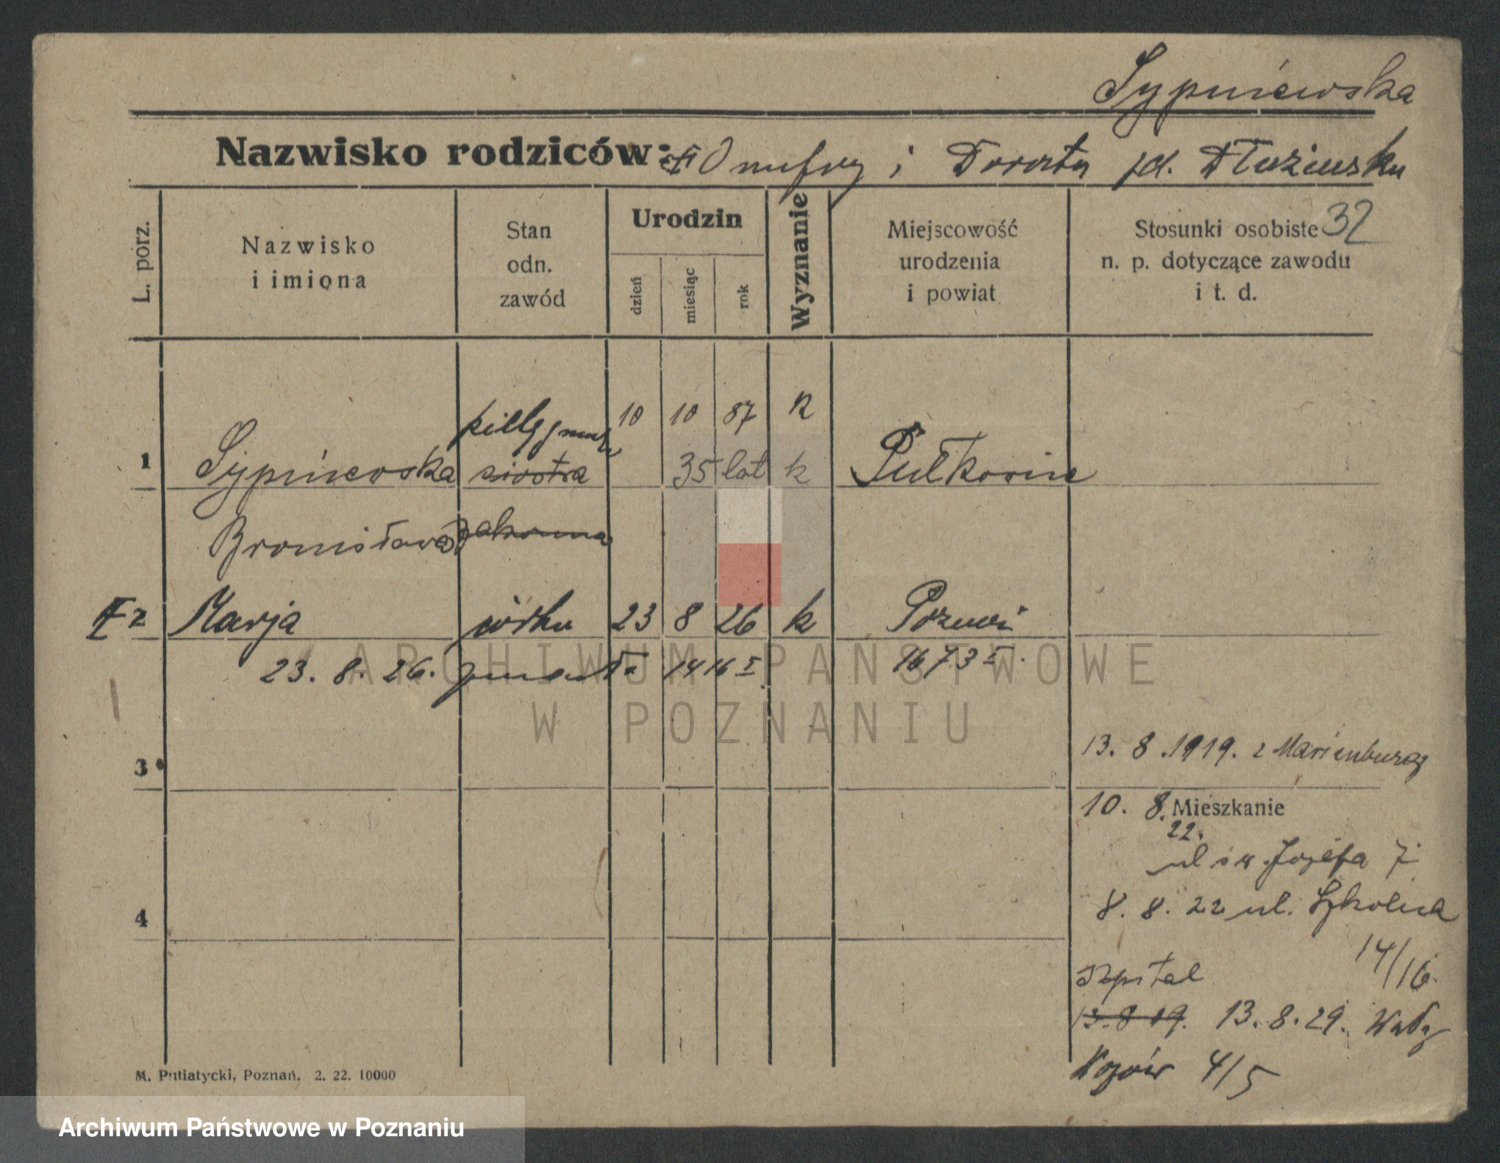 Sypniewska
Nazwisko rodziców: Onufry i Dorota
L. porz.
Nazwisko
i imiona
Stan
odn.
zawód
Urodzin
dzień
miesiąc
rok
Wyznanie
Miejscowość
urodzenia
i powiat
Stosunki osobiste 32
n. p. dotyczące zawodu
i t. d.
10 10 87 k
1 Sypniewska siostra 35 lat k
Bronisława zakonna
2 Marja córka 23 8 26 k Poznań
23. 8. 26. zmarła 14/16 I 1673 I.
ARCHIWUM PAŃSTWOWE
W POZNANIU
3
13. 8. 1919. z Marienburg
10. 8. Mieszkanie
22.
ul św. Józefa 7
4
8. 8. 22 ul. Szkolna
14/16
szpital
13. 8 19. 13. 8. 29. Wały
4/5
M. Putiatycki, Poznań. 2. 22. 10000
Archiwum Państwowe w Poznaniu